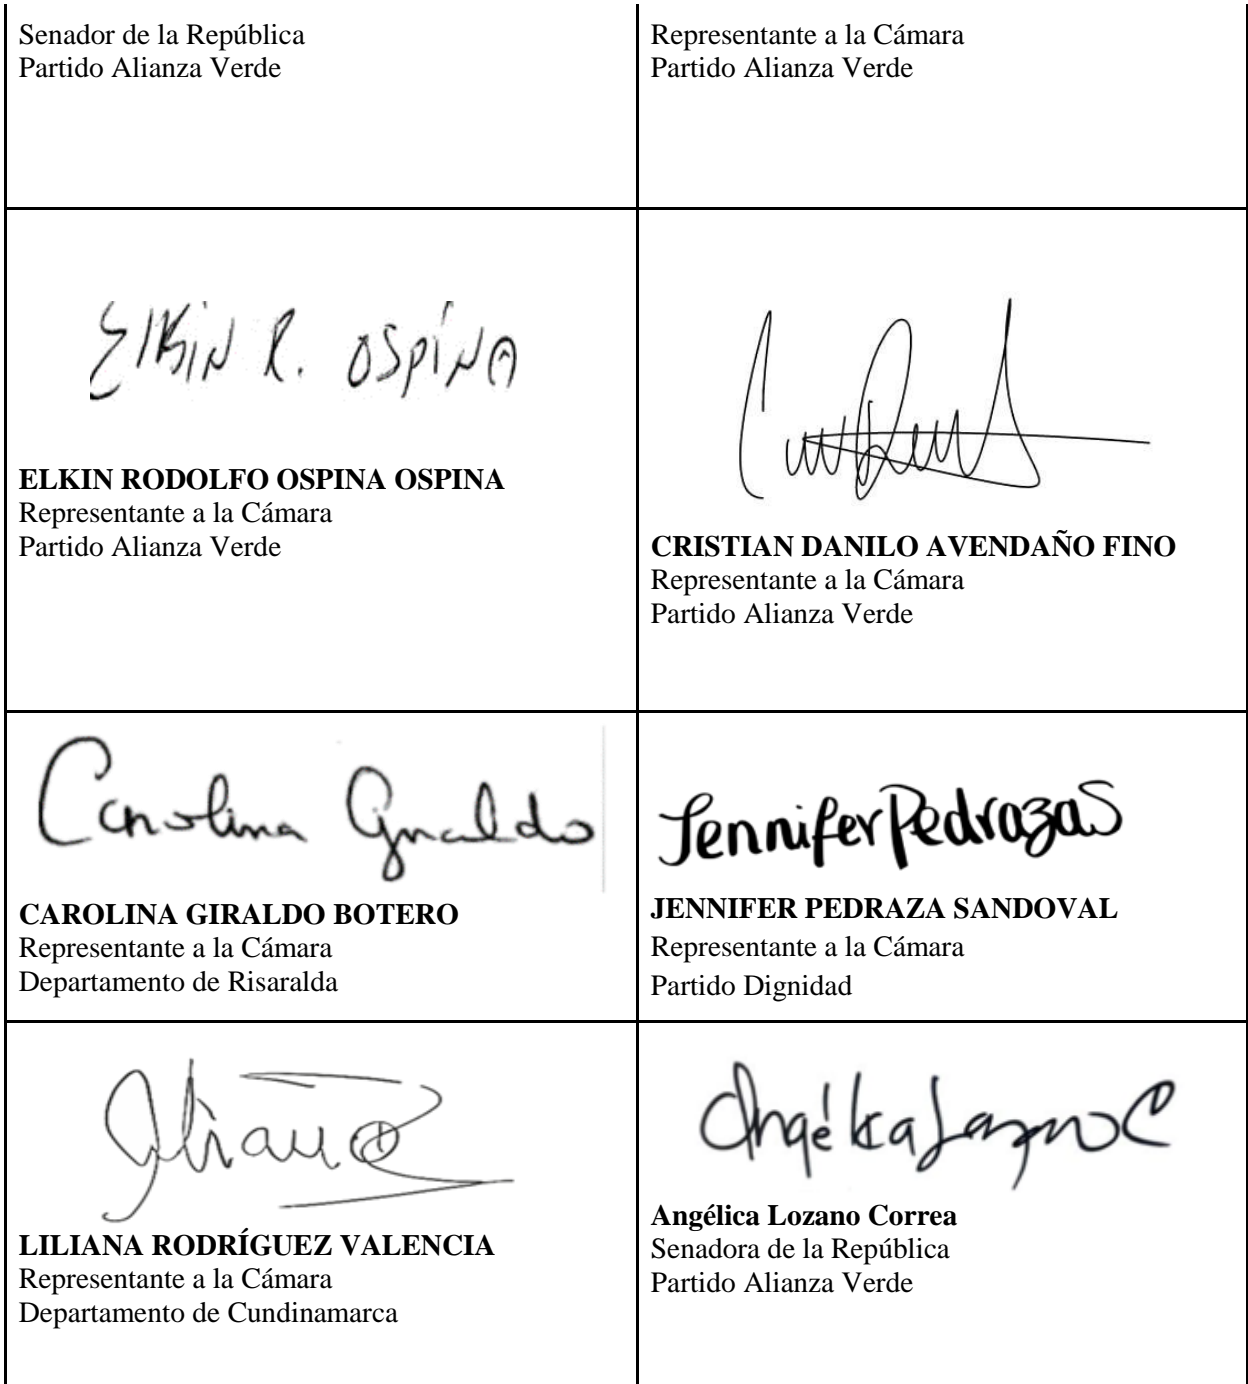 Senador de la República
Partido Alianza Verde
Representante a la Cámara
Partido Alianza Verde
Elkin R. OSpiNA
ELKIN RODOLFO OSPINA OSPINA
Representante a la Cámara
Partido Alianza Verde
CRISTIAN DANILO AVENDAÑO FINO
Representante a la Cámara
Partido Alianza Verde
Carolina Giraldo
CAROLINA GIRALDO BOTERO
Representante a la Cámara
Departamento de Risaralda
Jennifer Pedraza S
JENNIFER PEDRAZA SANDOVAL
Representante a la Cámara
Partido Dignidad
LILIANA RODRÍGUEZ VALENCIA
Representante a la Cámara
Departamento de Cundinamarca
Angélica Lozano C
Angélica Lozano Correa
Senadora de la República
Partido Alianza Verde